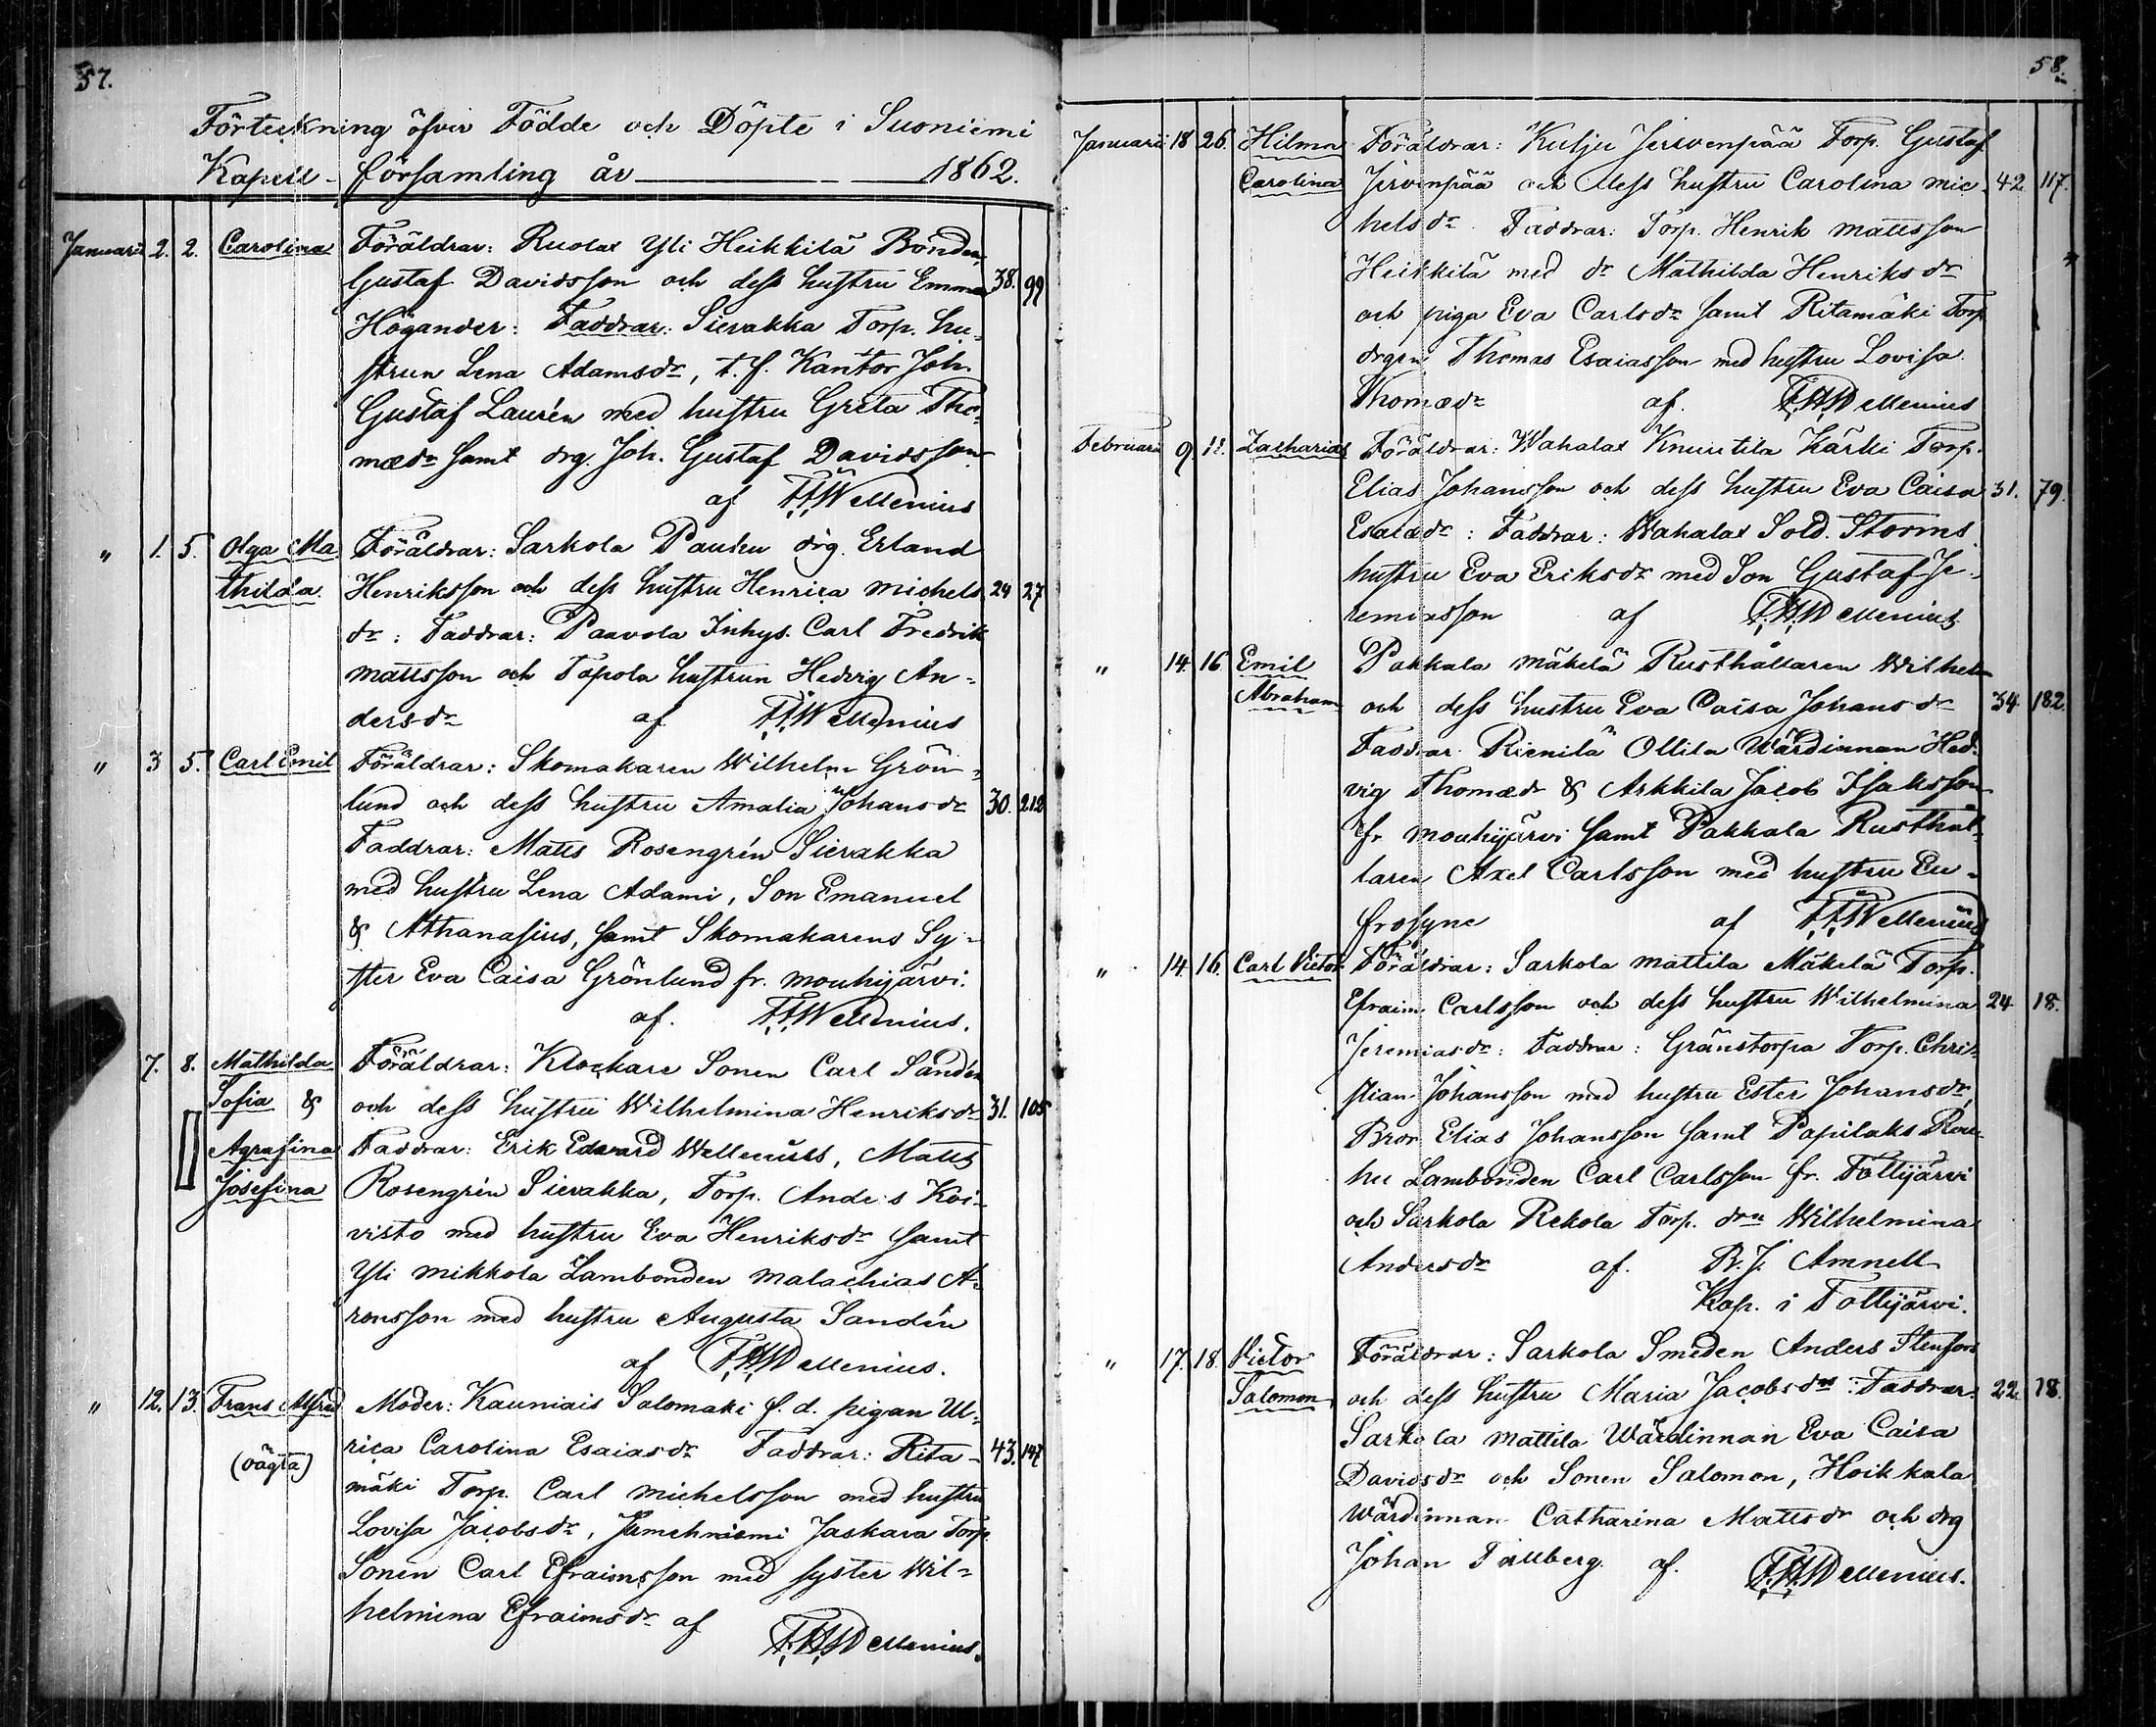 57.
Förteckning öfver Födde och Döpte i Suoniemi
Kapell-församling år 1862.
Januarii 2. 2. Carolina Föräldrar: Ruolax Yli Heikkilä Bonden
Gustaf Davidsson och dess hustru Emma 38. 99
Högander: Faddrar: Sierakka Torp. hu-
strun Lena Adamsdr, t. f. Kantor Joh.
Gustaf Laurén med hustru Greta Tho-
mædr samt drg. Joh. Gustaf Davidsson
af F.H.Wellenius
" 1. 5. Olga Ma- Föräldrar: Sarkola Pauhu drg. Erland
thilda. Henriksson och dess hustru Henrica Michels 24 27
dr: Faddrar: Paavola Inhys. Carl Fredrik
Mattsson och Topola hustrun Hedvig An-
dersdr af F.H.Wellenius
" 3 5. Carl Emil Föräldrar: Skomakaren Wilhelm Grön-
lund och dess hustru Amalia Johansdr 30. 212
Faddrar: Matts Rosengrén Sierakka
med hustru Lena Adami, Son Emanuel
& Athanasius, samt Skomakarens Sy-
ster Eva Caisa Grönlund fr. Mouhijärvi.
af. F.H.Wellenius.
7. 8. Mathilda Föräldrar: Klockare Sonen Carl Sandén
Sofia & och dess hustru Wilhelmina Henriksdr 31. 105
Agrafina Faddrar: Erik Edvard Wellenius, Matts
Josefina Rosengrén Sierakka, Torp. Anders Koi-
visto med hustru Eva Henriksdr samt
Yli Mikkola Lambonden Malachias A-
ronsson med hustru Augusta Sandén
af F.H.Wellenius.
" 12. 13. Frans Alfred Moder: Kauniais Salomaki f. d. pigan Ul-
(oägta) rica Carolina Esaiasdr Faddrar: Rita- 43. 147
mäki Torp. Carl Michelsson med hustru
Lovisa Jacobsdr, Jaskara Torp.
Sonen Carl Efraimsson med syster Wil-
helmina Efraimsdr af F.H.Wellenius.
58.
Januarii 18 26. Hilma Föräldrar: Kulju Jervenpää Torp. Gustaf
Carolina Jervenpää och dess hustru Carolina Mic- 42. 117.
helsdr. Faddrar: Torp. Henrik Mattsson
Heikkilä med dr Mathilda Henriksdr
och piga Eva Carlsdr samt Ritamäki Torp
drgen Thomas Esaiasson med hustru Lovisa
Thomædr af. F.H.Wellenius
Februarii 9. 12. Zacharias Föräldrar: Wahalax Knuutila Kärki Torp.
Elias Johansson och dess hustru Eva Caisa 31. 79.
Esaiædr: Faddrar: Wahalax Sold. Storms
hustru Eva Eriksdr med Son Gustaf Je-
remiasson af F.H.Wellenius
" 14. 16 Emil Pakkala Mäkelä Rusthållaren Wilhelm
Abraham och dess hustru Eva Caisa Johansdr 34 182.
Faddrar Rienilä Ollila Wärdinnan Hed-
vig Thomædr & Arkkila Jacob Isaksson
fr Mouhijärvi samt Pakkala Rusthål-
laren Axel Carlsson med hustru Eu-
frosyne af F.H.Wellenius
" 14. 16. Carl Victor Föräldrar: Sarkola Mattila Mäkelä Torp.
Efraim Carlsson och dess hustru Wilhelmina 24. 18.
Jeremiasdr: Faddrar: Gränstorpa Torp. Chri-
stian Johansson med hustru Ester Johansdr,
Bror Elias Johansson samt Papilaks Rou-
hu Lambonden Carl Carlsson fr. Tottijärvi
och Sarkola Rekola Torp. drn Wilhelmina
Andersdr af. B. J. Amnell
Kap. i Tottijärvi.
" 17. 18. Victor Föräldrar: Sarkola Smeden Anders Stenfors
Salomon och dess hustru Maria Jacobsdr: Faddrar. 22. 18.
Sarkola Mattila Wärdinnan Eva Caisa
Davidsdr och Sonen Salomon, Hoikkala
Wärdinnan Catharina Mattsdr och drg
Johan Tallberg. af. F.H.Wellenius.